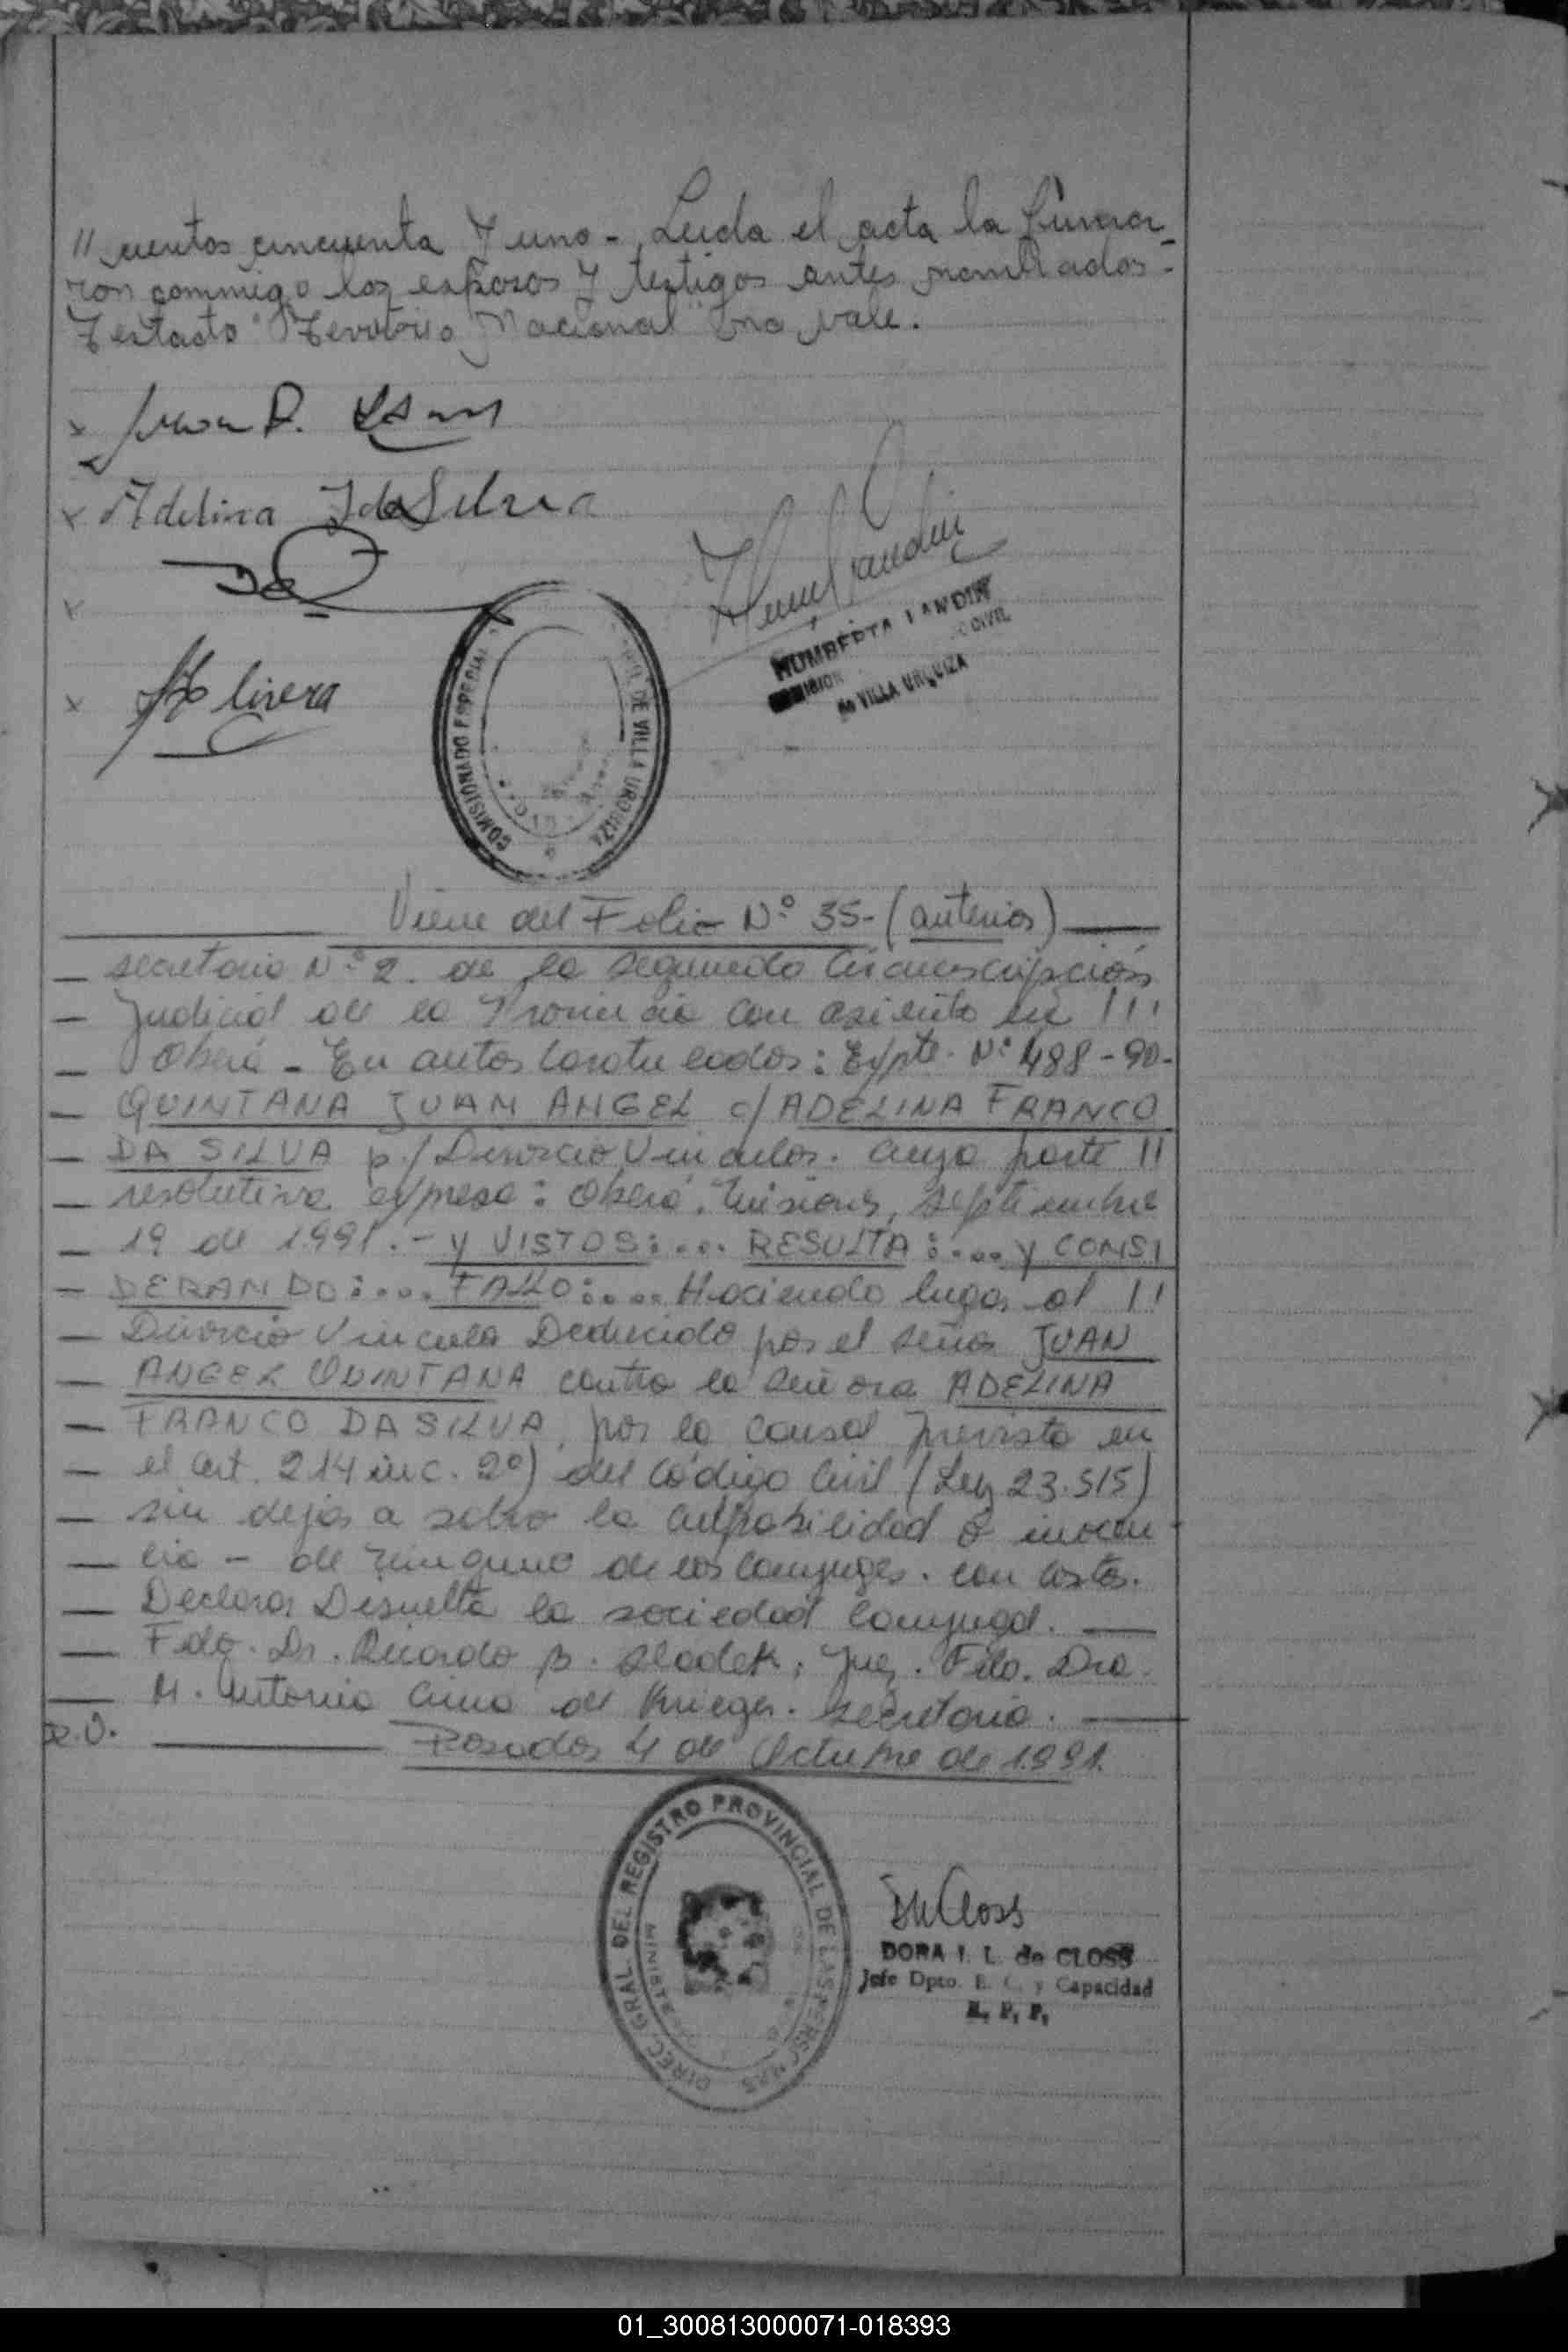 // cientos cincuenta y uno - Leida el acta la firma-
ron conmigo los esposos y testigos antes nombrados -
Testado "Territorio Nacional" no vale.
x Juan A.
x Adelina F da Silva
x
x Olivera
HUMBERTA LANDIN
CIVIL
de VILLA URQUIZA
COMISIONADO ESPECIAL
DE VILLA URQUIZA
Viene del Folio Nº 35- (anterior)
— secretaria Nº 2. de la segunda Circunscripción
— Judicial de la Provincia con asiento en !!!
— Oberá - En autos Caratulados: Expte. Nº 488-90-
— QUINTANA JUAN ANGEL c/ ADELINA FRANCO
— DA SILVA p/ Divorcio Vincular. cuya parte !!
— resolutiva expresa: Oberá, Misiones, septiembre
— 19 de 1991.- y VISTOS:... RESULTA:... y CONSI
— DERANDO:... FALLO:... Haciendo lugar al !!
— Divorcio Vincular Deducido por el señor JUAN
— ANGEL QUINTANA contra la señora ADELINA
— FRANCO DA SILVA, por la causal prevista en
— el art. 214 inc. 2º) del Código Civil (Ley 23.515)
— sin dejar a salvo la culpabilidad o inocen
— cia - de ninguno de los conyuges. con costas.
— Declarar Disuelta la sociedad conyugal. —
— Fdo. Dr. Ricardo B. Sladek, Juez. Fdo. Dra.
— M. Antonia Cima de Krieger. Secretaria. —
R.O. Posadas 4 de Octubre de 1991.
DIREC. GRAL. DEL REGISTRO PROVINCIAL DE LAS PERSONAS
DORA I. L. de CLOSS
Jefe Dpto. E. C. y Capacidad
R. P. P.
01_300813000071-018393